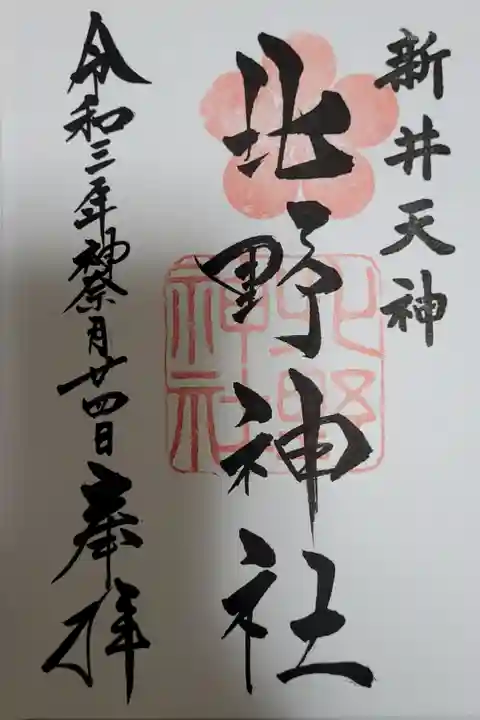 新井天神
北野神社
北野神社
令和三年神奈月廿四日
奉拝